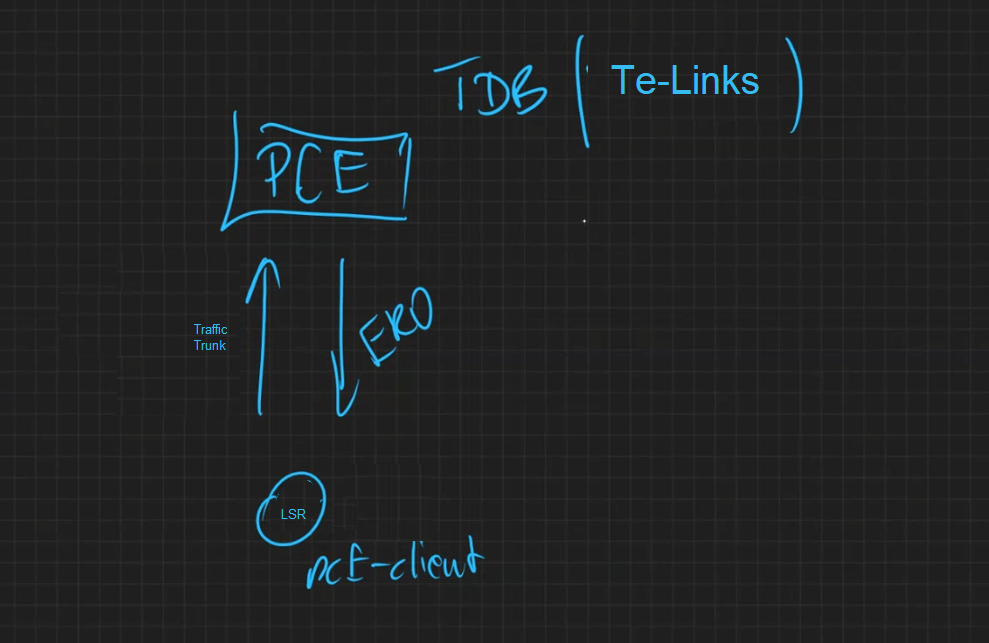 TDB ( Te-Links )
PCE
ERO
Traffic
Trunk
LSR
pcE-client